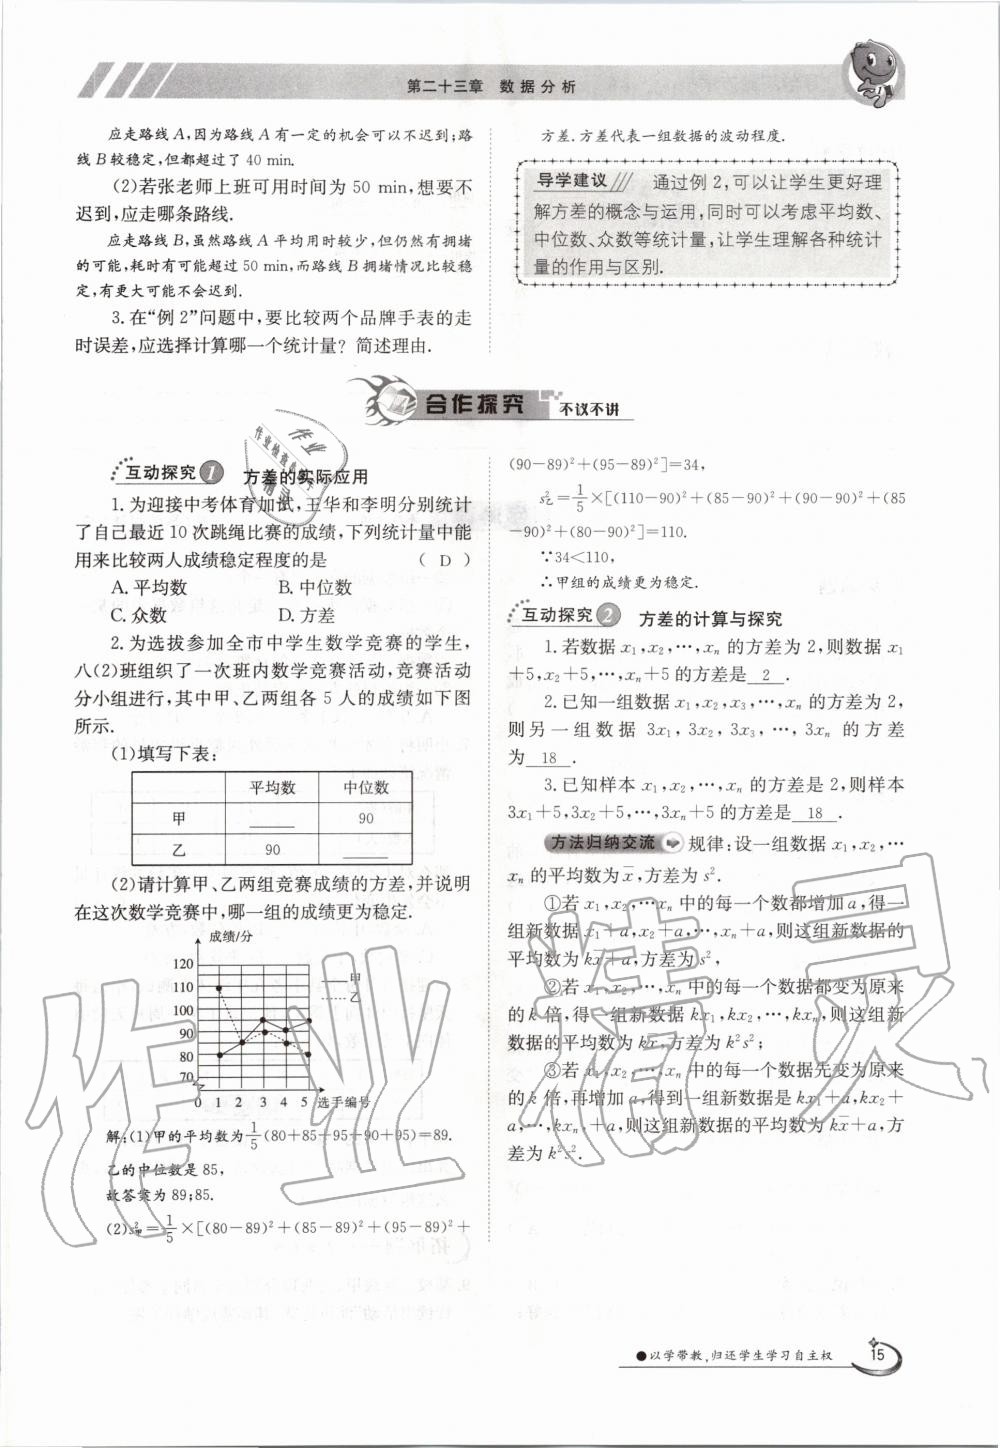 第二十三章 数据分析
应走路线A,因为路线A有一定的机会可以不迟到;路
线B较稳定,但都超过了40 min.
(2)若张老师上班可用时间为50 min,想要不
迟到,应走哪条路线.
应走路线B,虽然路线A平均用时较少,但仍然有拥堵
的可能,耗时有可能超过50 min,而路线B拥堵情况比较稳
定,有更大可能不会迟到.
3.在“例2”问题中,要比较两个品牌手表的走
时误差,应选择计算哪一个统计量?简述理由.
方差.方差代表一组数据的波动程度.
导学建议 通过例2,可以让学生更好理
解方差的概念与运用,同时可以考虑平均数、
中位数、众数等统计量,让学生理解各种统计
量的作用与区别.
合作探究 不议不讲
互动探究1 方差的实际应用
1.为迎接中考体育加试,王华和李明分别统计
了自己最近10次跳绳比赛的成绩,下列统计量中能
用来比较两人成绩稳定程度的是 ( D )
A.平均数 B.中位数
C.众数 D.方差
2.为选拔参加全市中学生数学竞赛的学生,
八(2)班组织了一次班内数学竞赛活动,竞赛活动
分小组进行,其中甲、乙两组各5人的成绩如下图
所示.
(1)填写下表:
平均数 中位数
甲 ____ 90
乙 90 ____
(2)请计算甲、乙两组竞赛成绩的方差,并说明
在这次数学竞赛中,哪一组的成绩更为稳定.
成绩/分
120
110
100
90
80
70
甲
乙
0 1 2 3 4 5 选手编号
解:(1)甲的平均数为1/5(80+85+95+90+95)=89.
乙的中位数是85,
故答案为89;85.
(2)s²甲=1/5×[(80-89)²+(85-89)²+(95-89)²+
(90-89)²+(95-89)²]=34,
s²乙=1/5×[(110-90)²+(85-90)²+(90-90)²+(85
-90)²+(80-90)²]=110.
∵34<110,
∴甲组的成绩更为稳定.
互动探究2 方差的计算与探究
1.若数据x₁,x₂,…,xₙ的方差为2,则数据x₁
+5,x₂+5,…,xₙ+5的方差是 2 .
2.已知一组数据x₁,x₂,x₃,…,xₙ的方差为2,
则另一组数据3x₁,3x₂,3x₃,…,3xₙ的方差
为 18 .
3.已知样本x₁,x₂,…,xₙ的方差是2,则样本
3x₁+5,3x₂+5,…,3xₙ+5的方差是 18 .
方法归纳交流 规律:设一组数据x₁,x₂,…
xₙ的平均数为x̄,方差为s².
①若x₁,x₂,…xₙ中的每一个数都增加a,得一
组新数据x₁+a,x₂+a,…,xₙ+a,则这组新数据的
平均数为kx̄+a,方差为s²,
②若x₁,x₂,…,xₙ中的每一个数据都变为原来
的k倍,得一组新数据kx₁,kx₂,…,kxₙ,则这组新
数据的平均数为kx̄,方差为k²s²;
③若x₁,x₂,…,xₙ中的每一个数据先变为原来
的k倍,再增加a,得到一组新数据是kx₁+a,kx₂+
a,…,kxₙ+a,则这组新数据的平均数为kx̄+a,方
差为k²s².
作业精灵
●以学带教,归还学生学习自主权
15